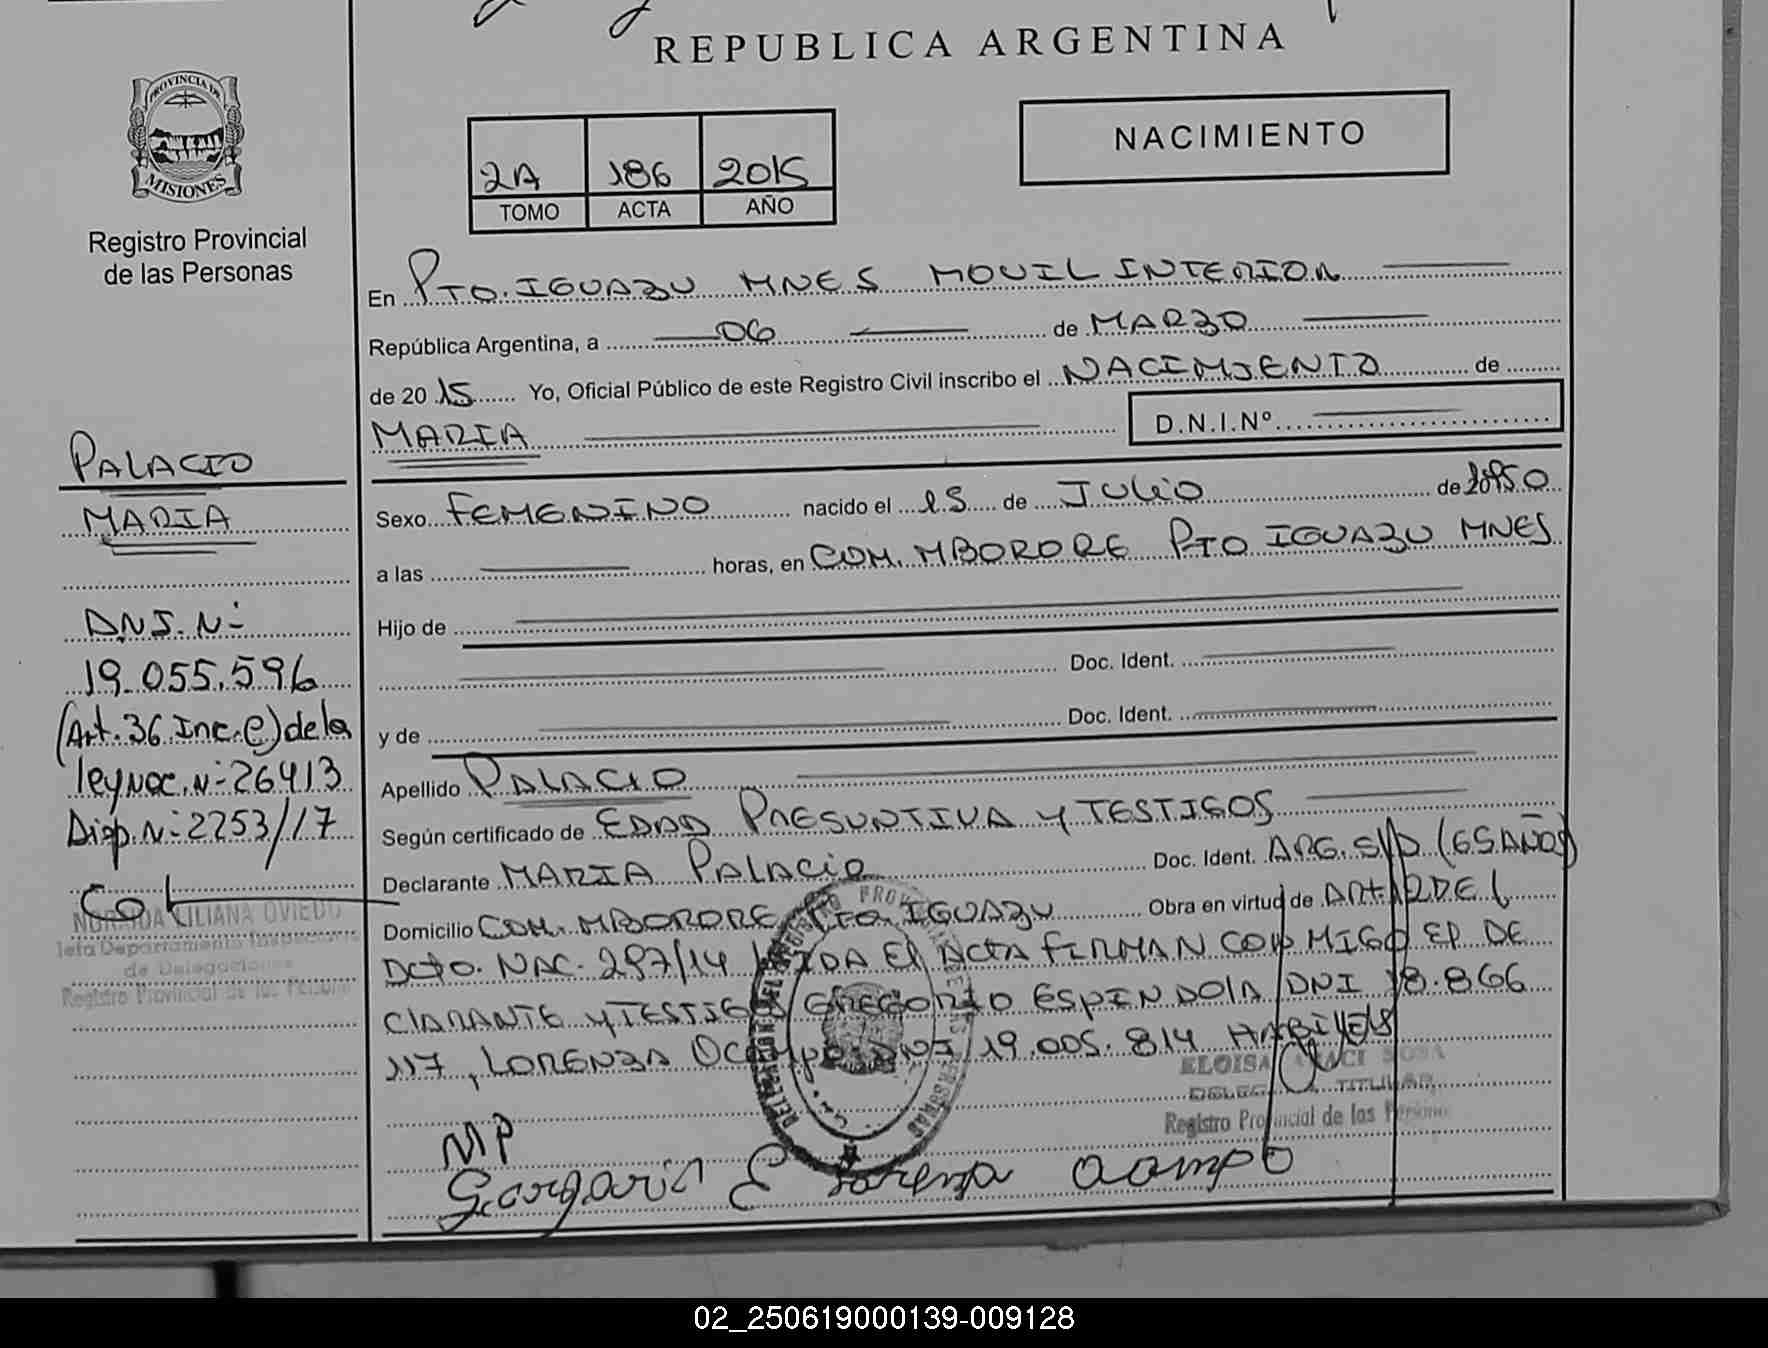 REPUBLICA ARGENTINA
PROVINCIA DE
MISIONES
Registro Provincial
de las Personas
2A 186 2015
TOMO ACTA AÑO
NACIMIENTO
PALACIO
MARIA
DNI. Nº
19.055.596
(Art. 36 Inc. e) de la
ley Nac. Nº 26413
Disp. Nº 2253/17
LILIANA OVIEDO
Jefa Departamento Inspectoria
de Delegaciones
Registro Provincial de las Personas
En PTO. IGUAZU MNES MOVIL INTERIOR
República Argentina, a 06 de MARZO
de 2015 Yo, Oficial Público de este Registro Civil inscribo el NACIMIENTO de
MARIA D.N.I.Nº
Sexo FEMENINO nacido el 15 de JULIO de 1950
a las horas, en COM. MBORORE PTO IGUAZU MNES
Hijo de
Doc. Ident.
y de Doc. Ident.
Apellido PALACIO
Según certificado de EDAD PRESUNTIVA Y TESTIGOS
Declarante MARIA PALACIO Doc. Ident. ARG. S/D (65AÑOS)
Domicilio COM. MBORORE PTO. IGUAZU Obra en virtud de ART. 12 DEL
DCTO. NAC. 297/14 LEIDA EL ACTA FIRMAN CONMIGO EL DE
CLARANTE Y TESTIGOS GREGORIO ESPINDOLA DNI 18.866
117, LORENZA OCAMPO DNI 19.005.814 HABILES
ELOISA SOSA
TITULAR
Registro Provincial de las Personas
MP
E Lorenza Ocampo
02_250619000139-009128